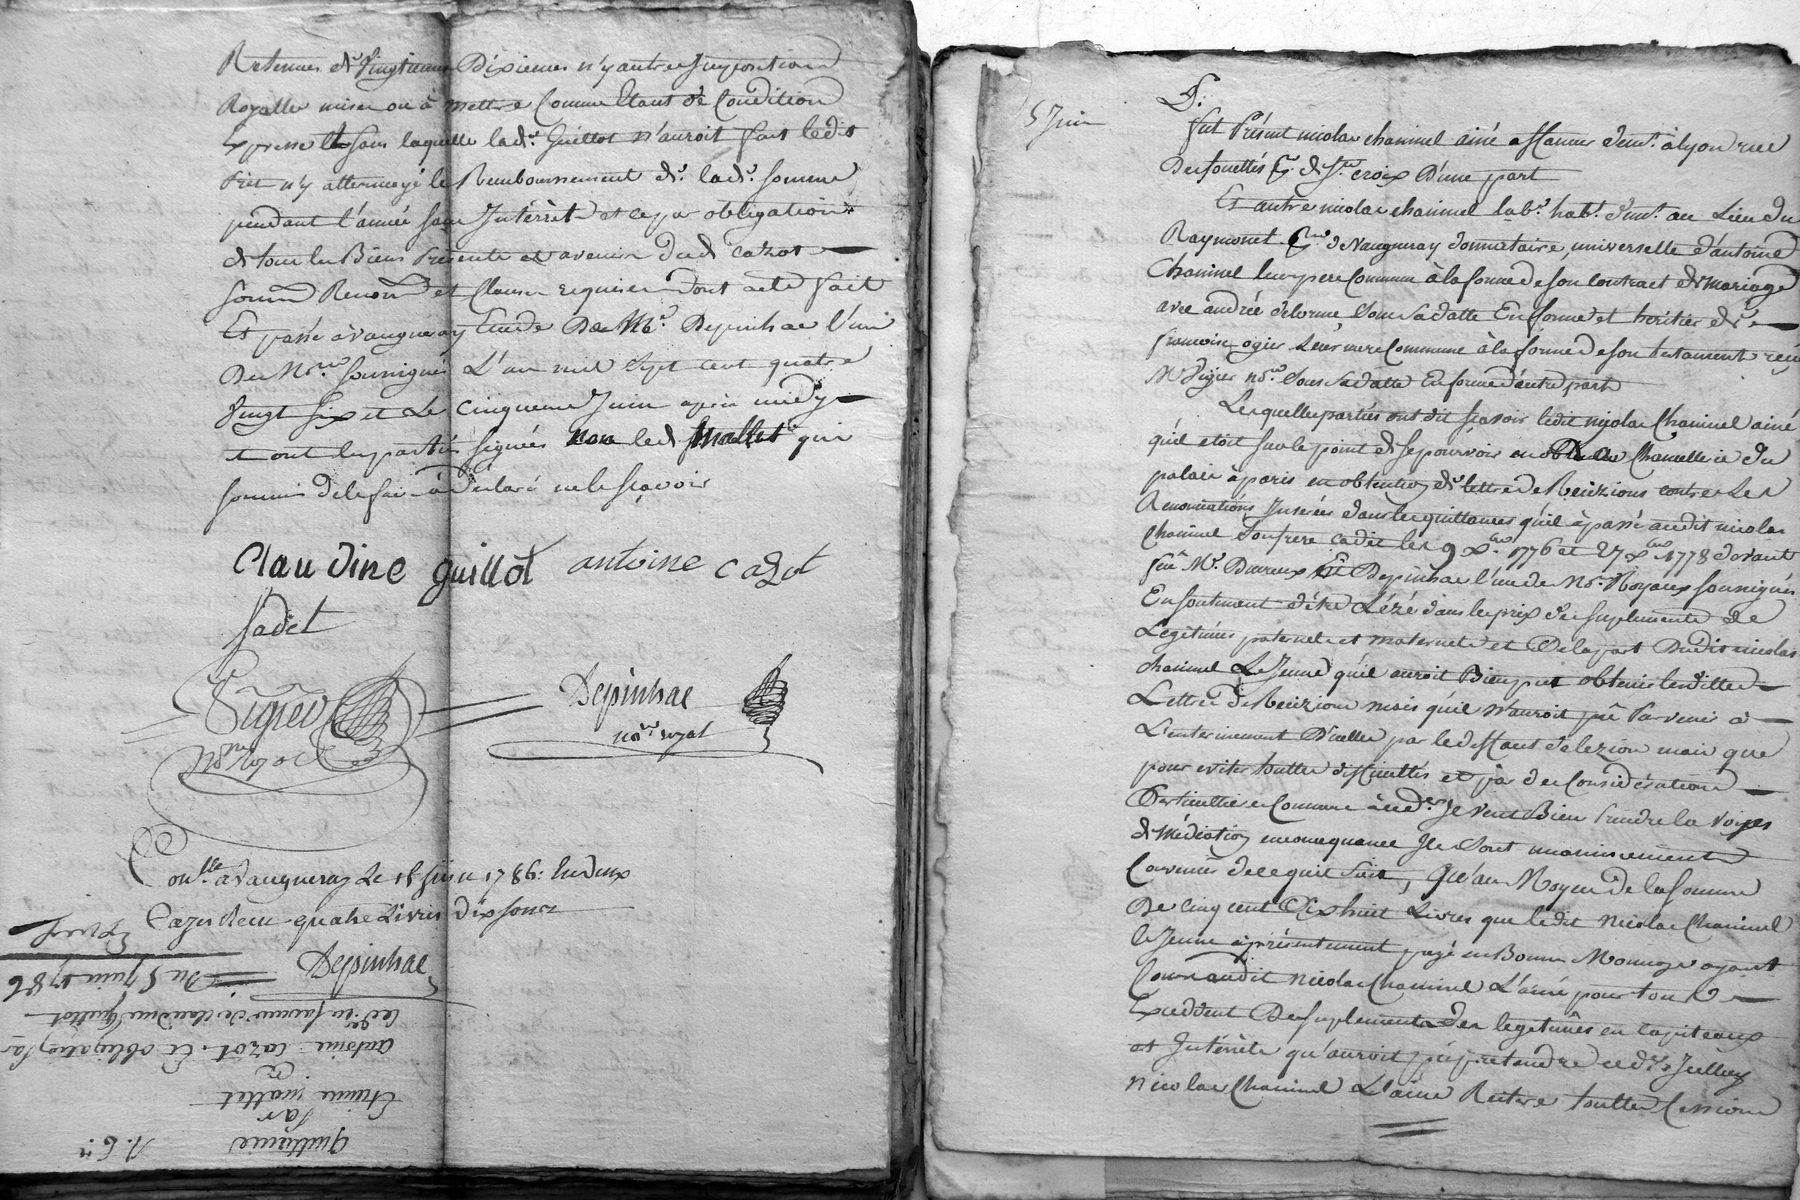 Retenues de Vingtiemes Dixiemes n'y autres Impositions
Royalles mises ou à mettre Comme Etant de Condition
Expresse Et sans laquelle lad.e Guillot n'auroit fait ledit
Prêt n'y attermoyé le Remboursement de lad.e somme
pendant l'année sans Intérêt et ce par obligation
de tous les Biens Présents et avenir dud Cazot
soumn Renonn et Clauses requises dont acte fait
Et passé à vaugneray Etude de M.e Depinhac l'un
Des No.res soussignés L'an mil sept cent quatre
Vingt six et Le Cinquieme Juin après midy
et ont les parties signés non led Mallet qui
sommé de le faire à déclaré ne le sçavoir
Claudine guillot antoine cazot
sadet
Vigier
Depinhac
no.re royal
Con.llé à Vaugneray Le 15 juin 1786: les deux
Cazes Reçu quatre Livres dix sous
Depinhac
Du 5 juin 1786
Quittance
par
Etienne mallet
à
antoine Cazot. Et obligation par
led. en faveur de Claudine Guillot
5 Juin
Fut Présent nicolas chaninel ainé affaneur demt. à lyon rue
Des fouettés P. de Ste. croix D'une part
Et autre nicolas chaninel lab.r hab.t dem.t au Lieu du
Raymonet P.sse de Vaugneray donnataire universelle d'antoine
Chaninel leur pere Commun à la forme de son Contract de mariage
avec andrée delorme Sous sa datte En forme et heritier de
francoise ogier Leur mere Commune à la forme de son testament reçu
M.e Vigier no.re Sous sa datte En forme d'autre part
Lesquelles parties ont dit sçavoir ledit nicolas Chaninel ainé
qu'il etoit sur le point de se pourvoir en la Chancellerie du
palais à paris en obtention de lettre de Réscizions contre Les
Renonciations Inserées dans les quittances qu'il à passé audit nicolas
Chaninel son frere cadet les 9 xbre 1776 et 27 xbre 1778 devant
feu M.e Et Depinhac l'un des No.res Royaux soussignés
En soutenant d'être Lézé dans le prix de suplements de
Legitimes paternel et maternel et De la part Dudit nicolas
chaninel Le Jeune qu'il auroit Bien peut obtenir lesdittes
Lettre de Réscizions mais qu'il n'auroit pû Parvenir à
L'enterinement D'icelles par le deffaut de lezion mais que
pour eviter touttes difficultés et par des Considérations
Particullieres Comme à ced. Je veut Bien Prendre la Voyes
de Médiation en consequance Ils Sont unanimement
Convenus de ce qui suit, Qu'au Moyen de la somme
De cinq cent Dix huit Livres que ledit Nicolas Chaninel
le Jeune à présentement payé en Bonne Monnoye ayant
Cours audit nicolas Chaninel L'ainé pour tous
Excédent De suplements des legitimes en Capiteaux
et Intérêts qu'auroit pû prétendre
nicolas Chaninel L'aine Reitere touttes Cessions